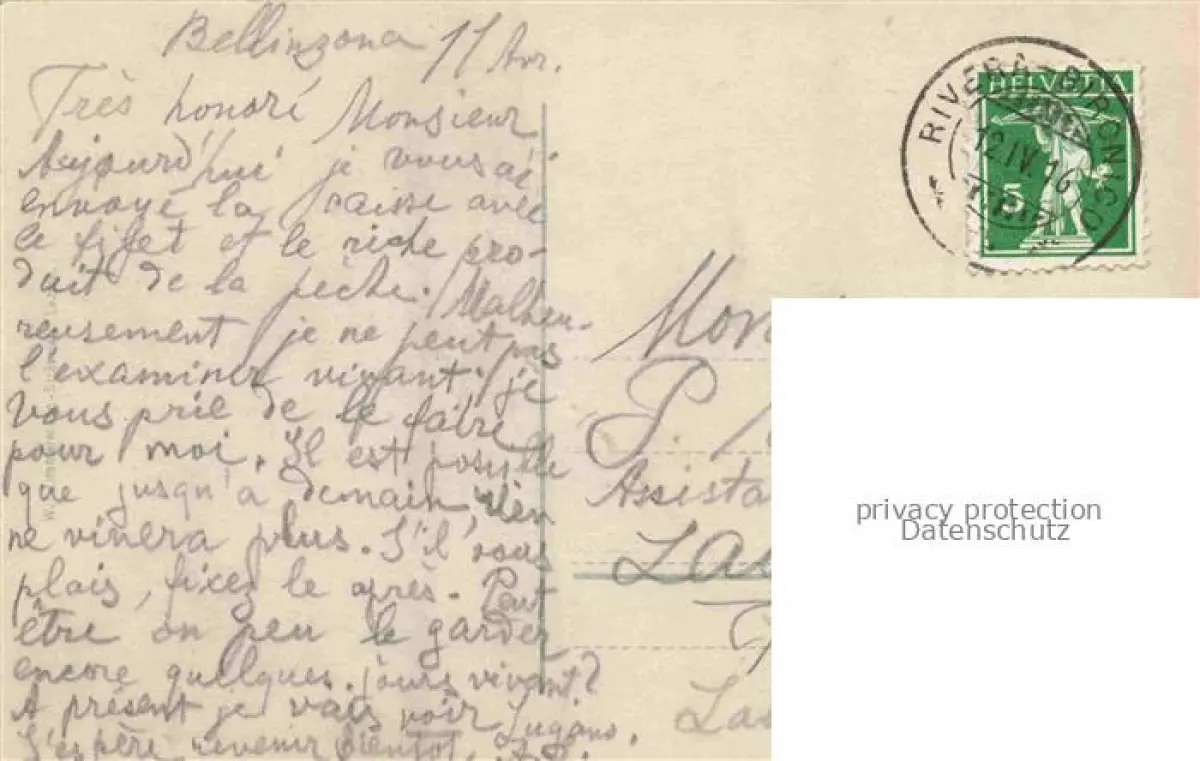 Bellinzona 11 Avr.
Très honoré Monsieur
Aujourd'hui je vous ai
envoyé la caisse avec
le filet et le riche pro-
duit de la peche. Malheu-
reusement je ne peut pas
l'examiner vivant. je
vous prie de le faire
pour moi. Il est possible
que jusqu'a demain, rien
ne vivera plus. S'il vous
plais, fixez le après. Peut
être on peu le garder
encore quelques jours vivant?
A présent je vais voir Lugano.
J'espère revenir bientot.
RIVERA-BIRONICO
12.IV.16
HELVETIA
5
Mon
P.
Assista
Lau
Lau
privacy protection
Datenschutz